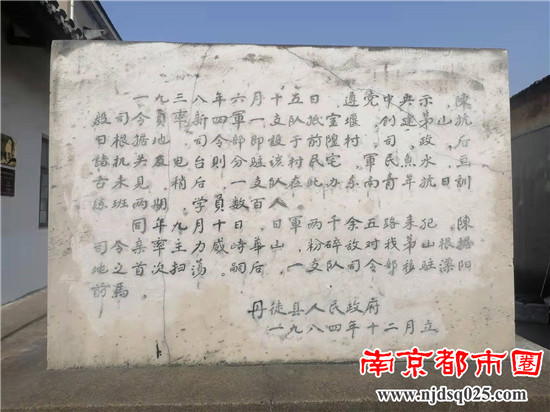 一九三八年六月十五日，遵党中央示，陈
毅司令员率新四军一支队抵宝堰，创建茅山抗
日根据地。司令部即设于前隍村。司、政、后
诸机关、电台则分驻该村民宅。军民鱼水，亘
古未见。稍后一支队在此办东南青年抗日训
练班两期，学员数百人。
同年九月十日，日军两千余五路来犯，陈
司令亲率主力威峙华山，粉碎敌对我茅山根据
地之首次扫荡。嗣后，一支队司令部移驻溧阳
前马。
丹徒县人民政府
一九八四年十二月立
南京都市圈
www.njdsq025.com